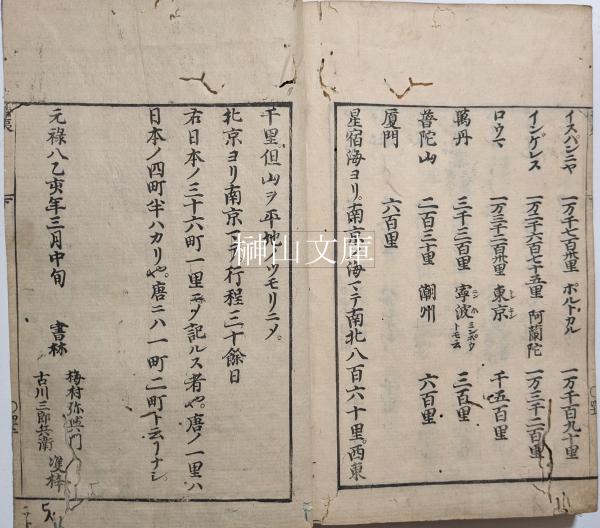 イスパンニヤ 一万千七百卅里 ポルトカル 一万千百九十里
インゲレス 一万三千六百七十五里 阿蘭陀 一万三千二百里
ロウマ 一万三千二百卅里 東京 トンキン 千五百里
萬丹 三千三百里 寧波 ニンハ ミンポウトモ云 三百里
普陀山 二百三十里 潮州 六百里
厦門 六百里
星宿海ヨリ。南京ノ海マテ南北八百六十里。西東
千里但山ヲ平地ノツモリニメ。
北京ヨリ南京マテノ行程三十餘日
右日本ノ三十六町一里ニメ記ルス者也。唐ノ一里ハ
日本ノ四町半ハカリ也。唐ニハ一町二町ト云フナシ
元禄八乙亥年三月中旬 書林
梅村弥與門
古川三郎兵衛
榊山文庫